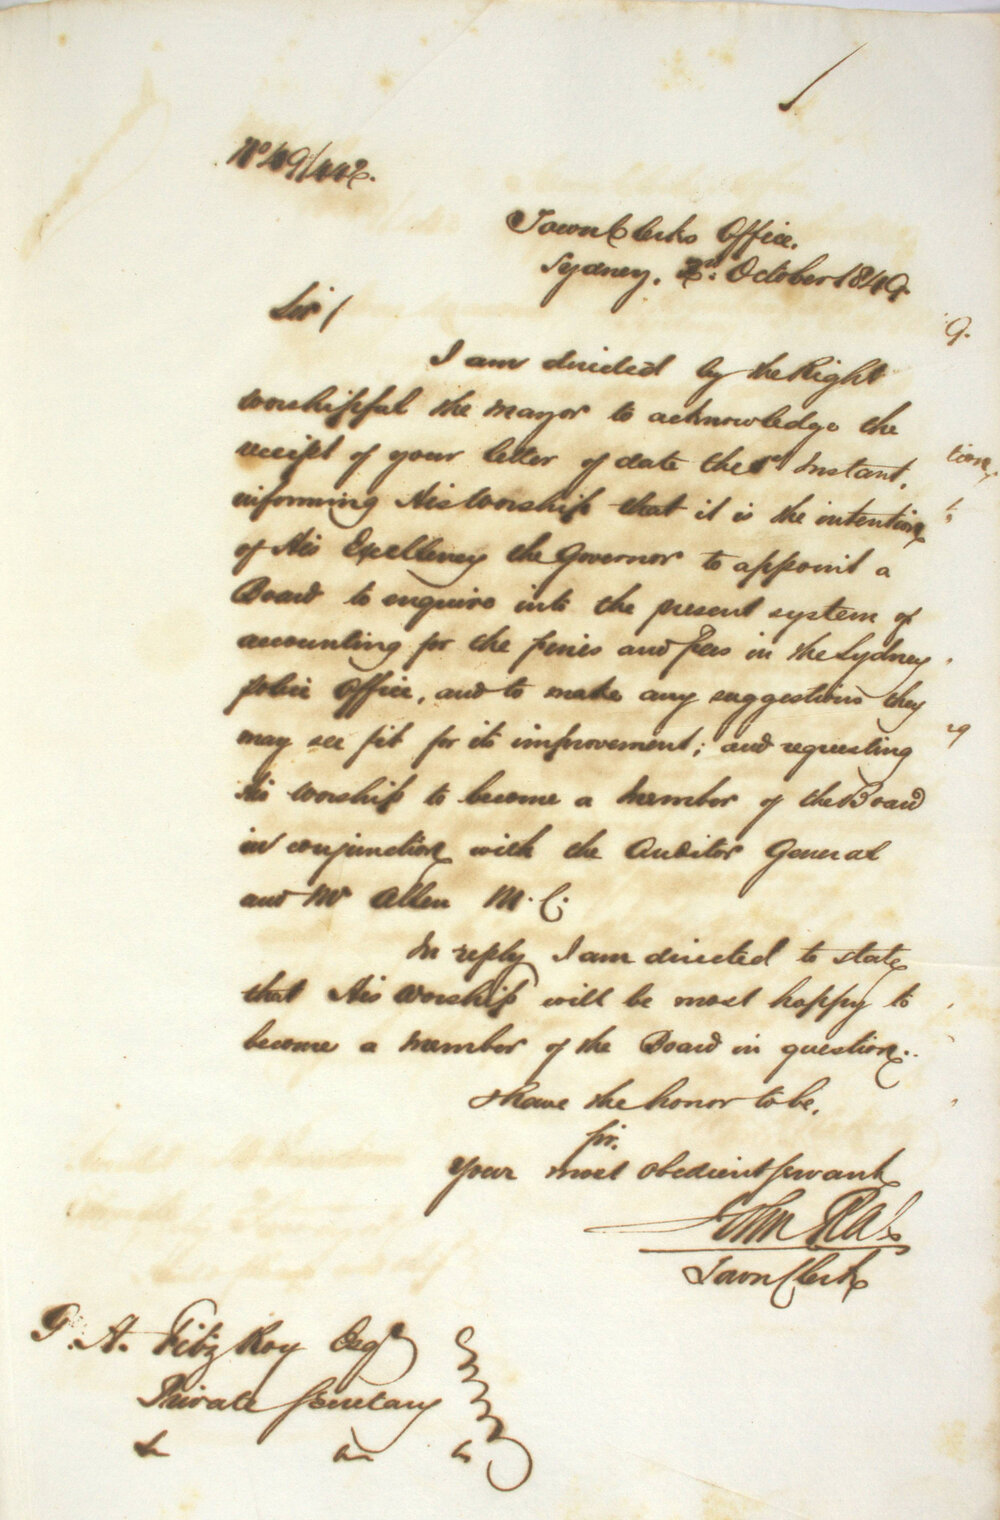 No 49/442.
Town Clerks Office.
Sydney. 2nd. October 1849.
Sir /
I am directed by the Right
Worshipful the Mayor to acknowledge the
receipt of your letter of date the Instant,
informing His Worship that it is the intention
of His Excellency the Governor to appoint a
Board to enquire into the present system of
accounting for the fines and fees in the Sydney
Police Office, and to make any suggestions they
may see fit for its improvement; and requesting
His Worship to become a Member of the Board
in conjunction with the Auditor General
and Mr Allen M.C.
In reply I am directed to state
that His Worship will be most happy to
become a Member of the Board in question.
I have the honor to be,
Sir.
Your most obedient Servant
John Rae
Town Clerk
G. A. FitzRoy Esqr
Private Secretary
&c &c &c